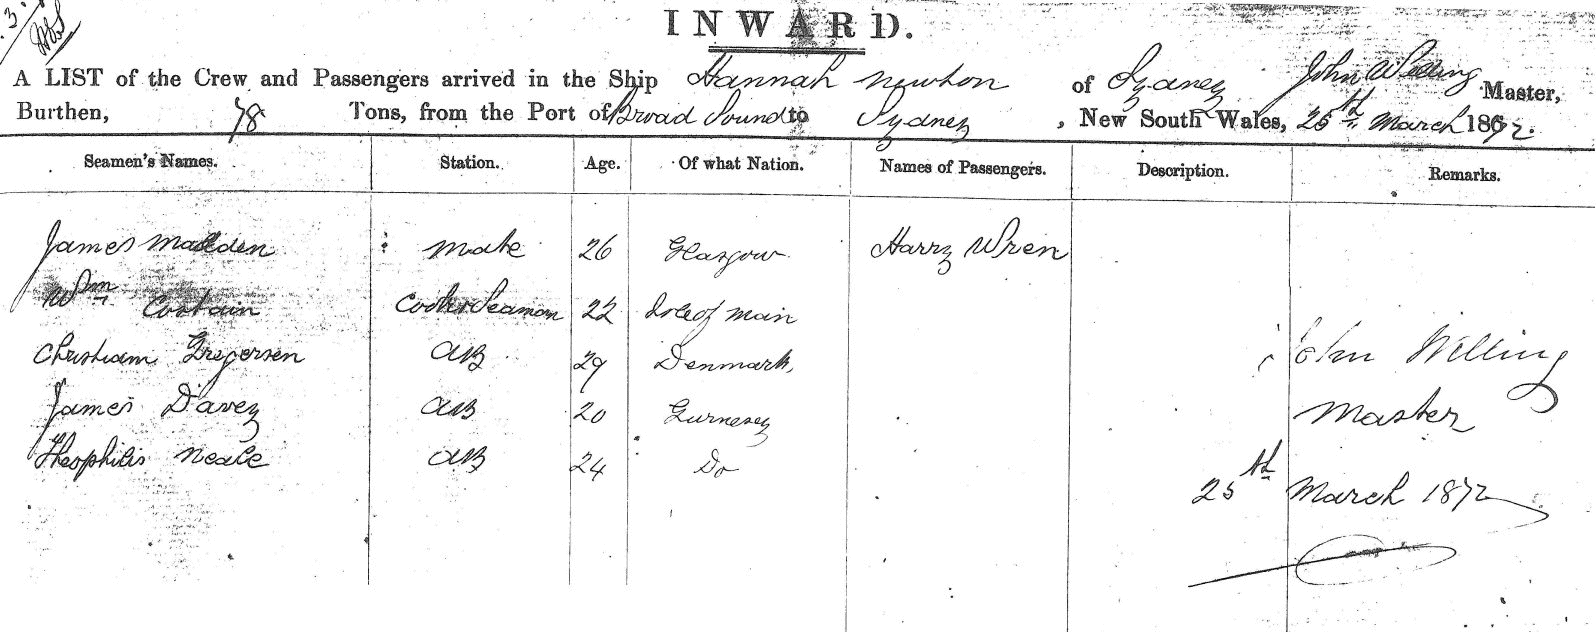 INWARD.
A LIST of the Crew and Passengers arrived in the Ship Hannah Newton of Sydney John Welling Master,
Burthen, 78 Tons, from the Port of Broad Sound to Sydney, New South Wales, 25th March 1872.
Seamen's Names. Station. Age. Of what Nation. Names of Passengers. Description. Remarks.
James Madden Mate 26 Glasgow Harry Wren
Wm Costain Cook & Seaman 22 Isle of Main
Christiam Gregersen AB 29 Denmark, John Welling
James Davey AB 20 Gurnesey Master
Theophilis Neale AB 24 Do
25th March 1872